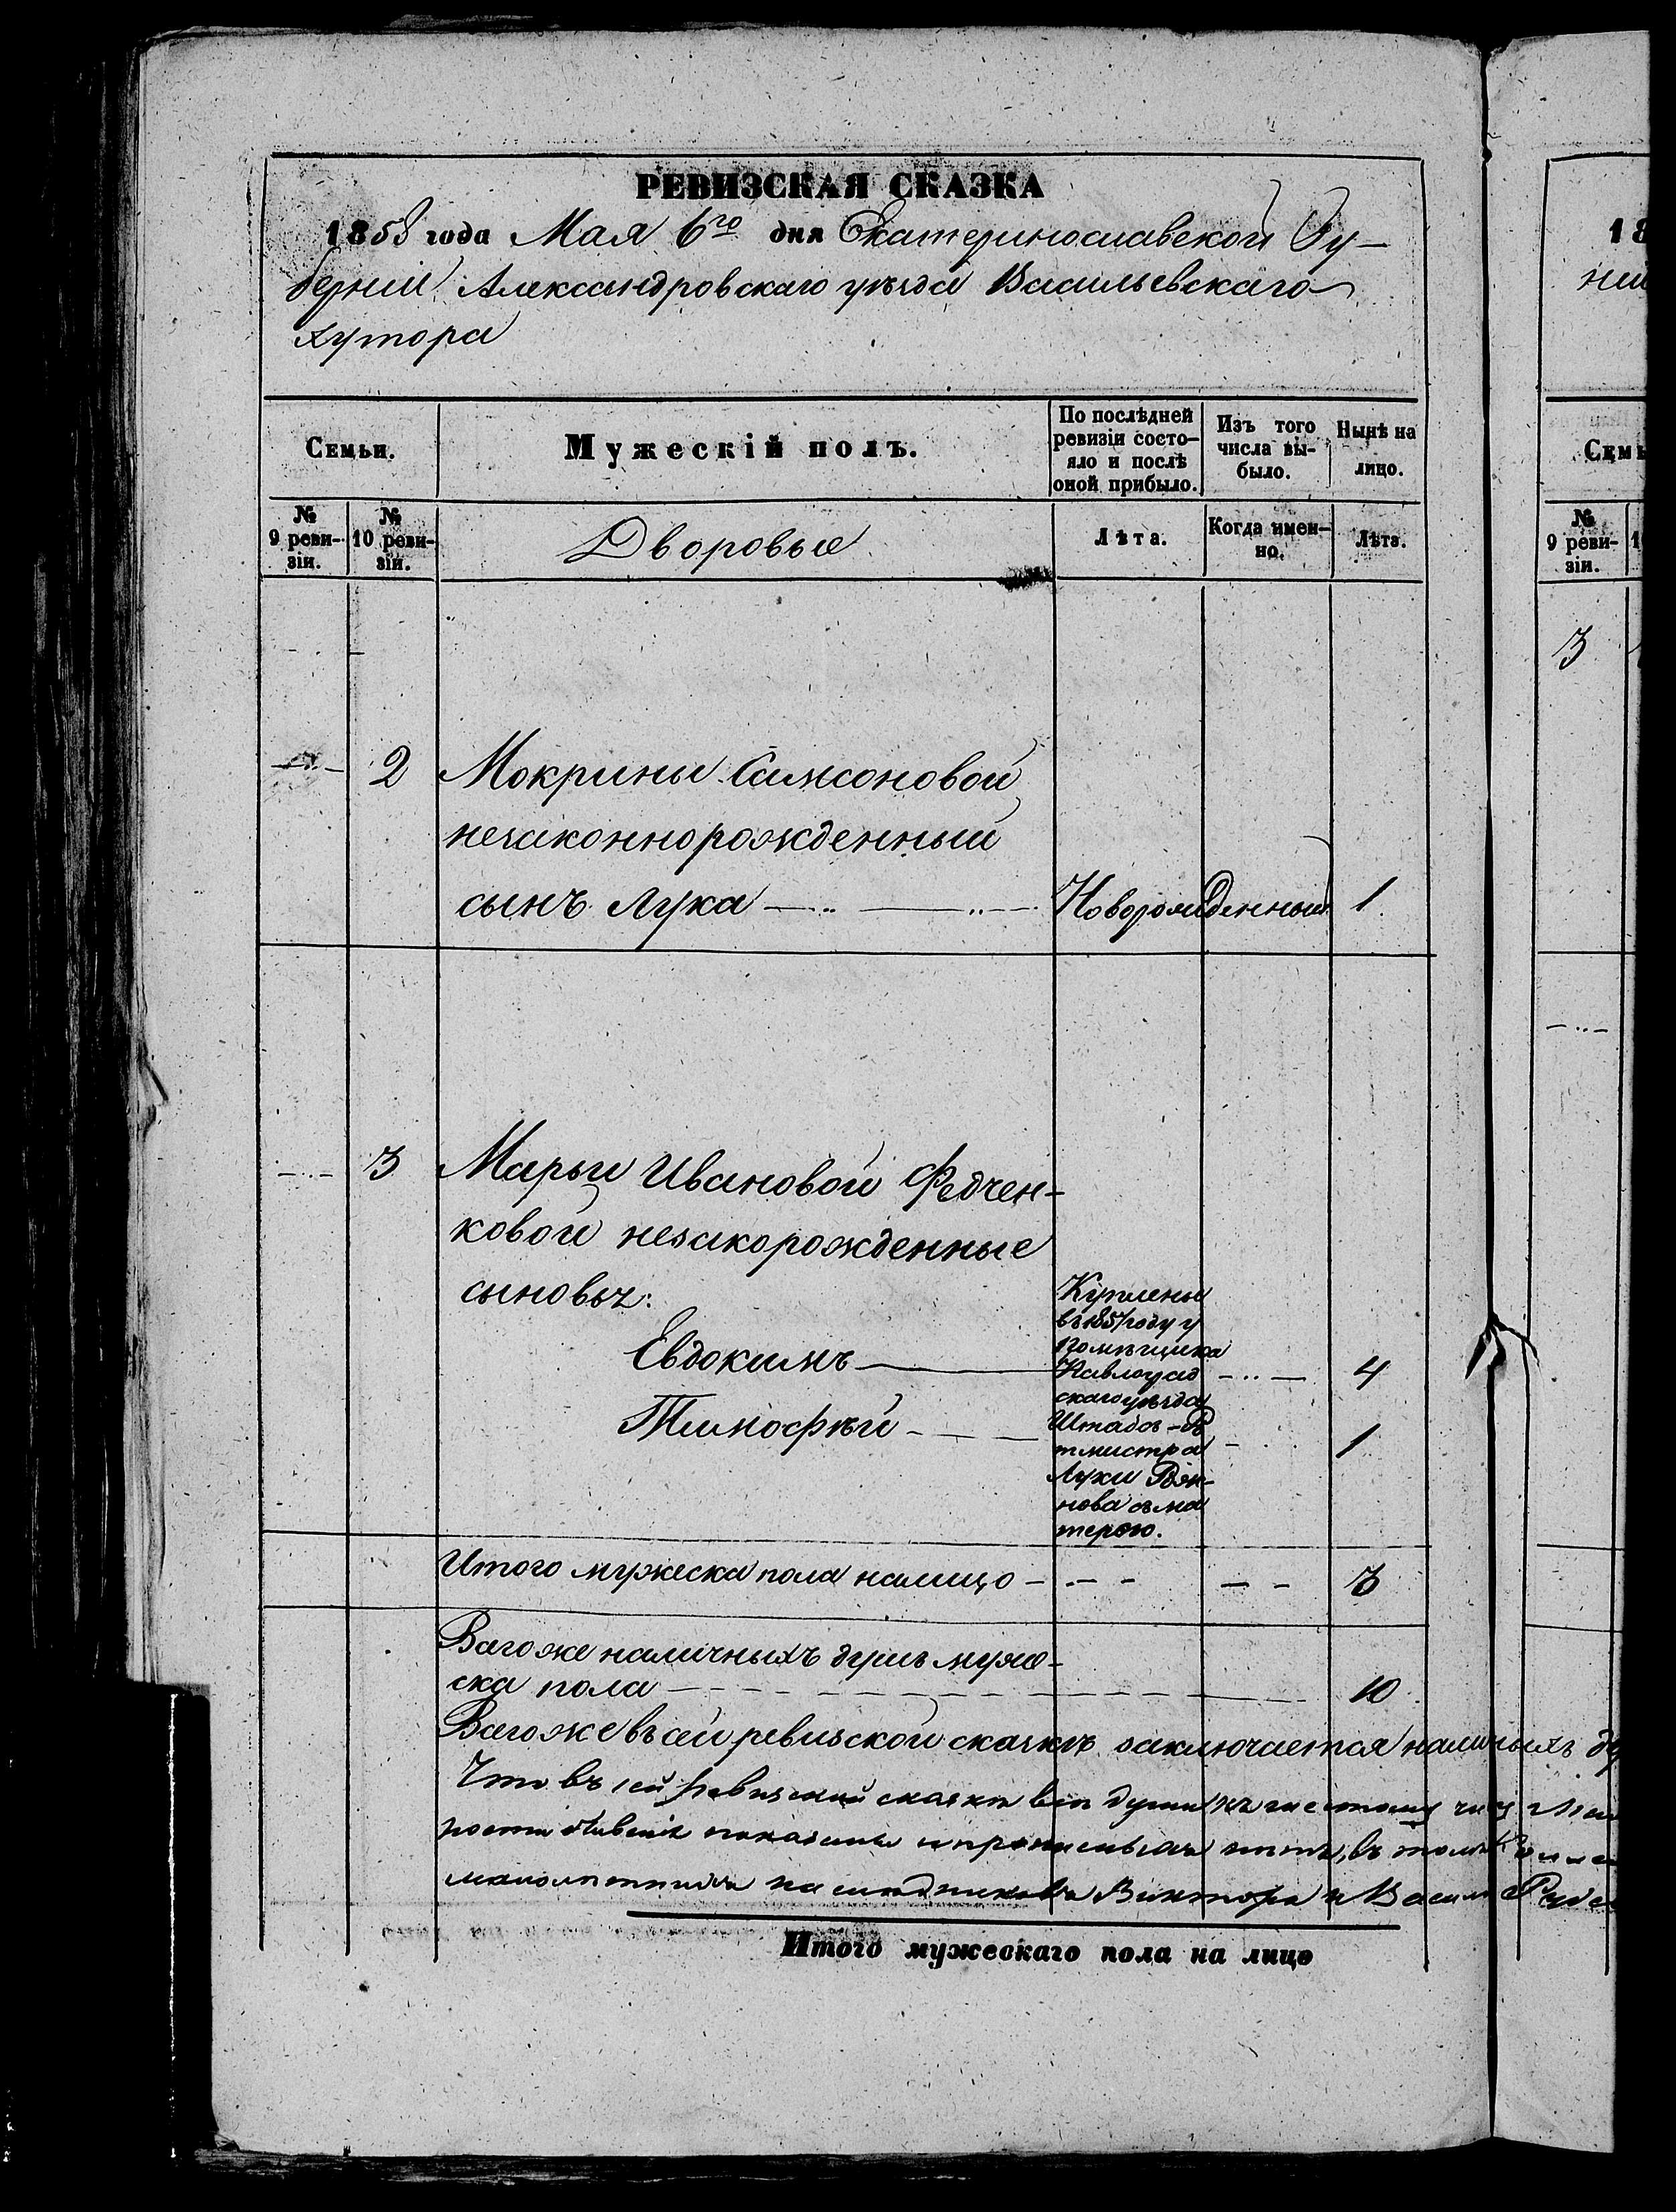 РЕВИЗСКАЯ СКАЗКА
1858 года Мая 6го дня Екатеринославской Гу-
берніи Александровскаго уѣзда Васильевскаго
хутора
18
ніи
Семьи.
Мужескій полъ.
По послѣдней ревизіи состо-яло и послѣ оной прибыло.
Изъ того числа вы-было.
Нынѣ на лицо.
Семь
№ 9 реви-зіи.
№ 10 реви-зіи.
Дворовые
Лѣта.
Когда имен-но.
Лѣта.
№ 9 реви-зіи.
3
2 Мокрины Самсоновой
незаконнорожденный
сынъ Лука Новорожденный 1
3 Марьи Ивановой Федчен-
ковой незакорожденные
сыновья:
Евдокимъ 4
Тимофѣй 1
Куплены
въ 1857 году у
помѣщика
Павлоград
скаго уѣзда
Штабсъ-Ро
тмистра
Луки
нова съ ма
терью.
Итого мужеска пола налицо 3
Всего же наличныхъ душъ муже-
ска пола 10
Всего же въ сей ревизской сказкѣ заключается наличныхъ ду
Что въ сей ревизской сказкѣ всѣ души къ настоящ
показаны и прописныхъ нѣтъ, въ томъ
малолѣтнихъ наслѣдниковъ Виктора и
Итого мужескаго пола на лицо